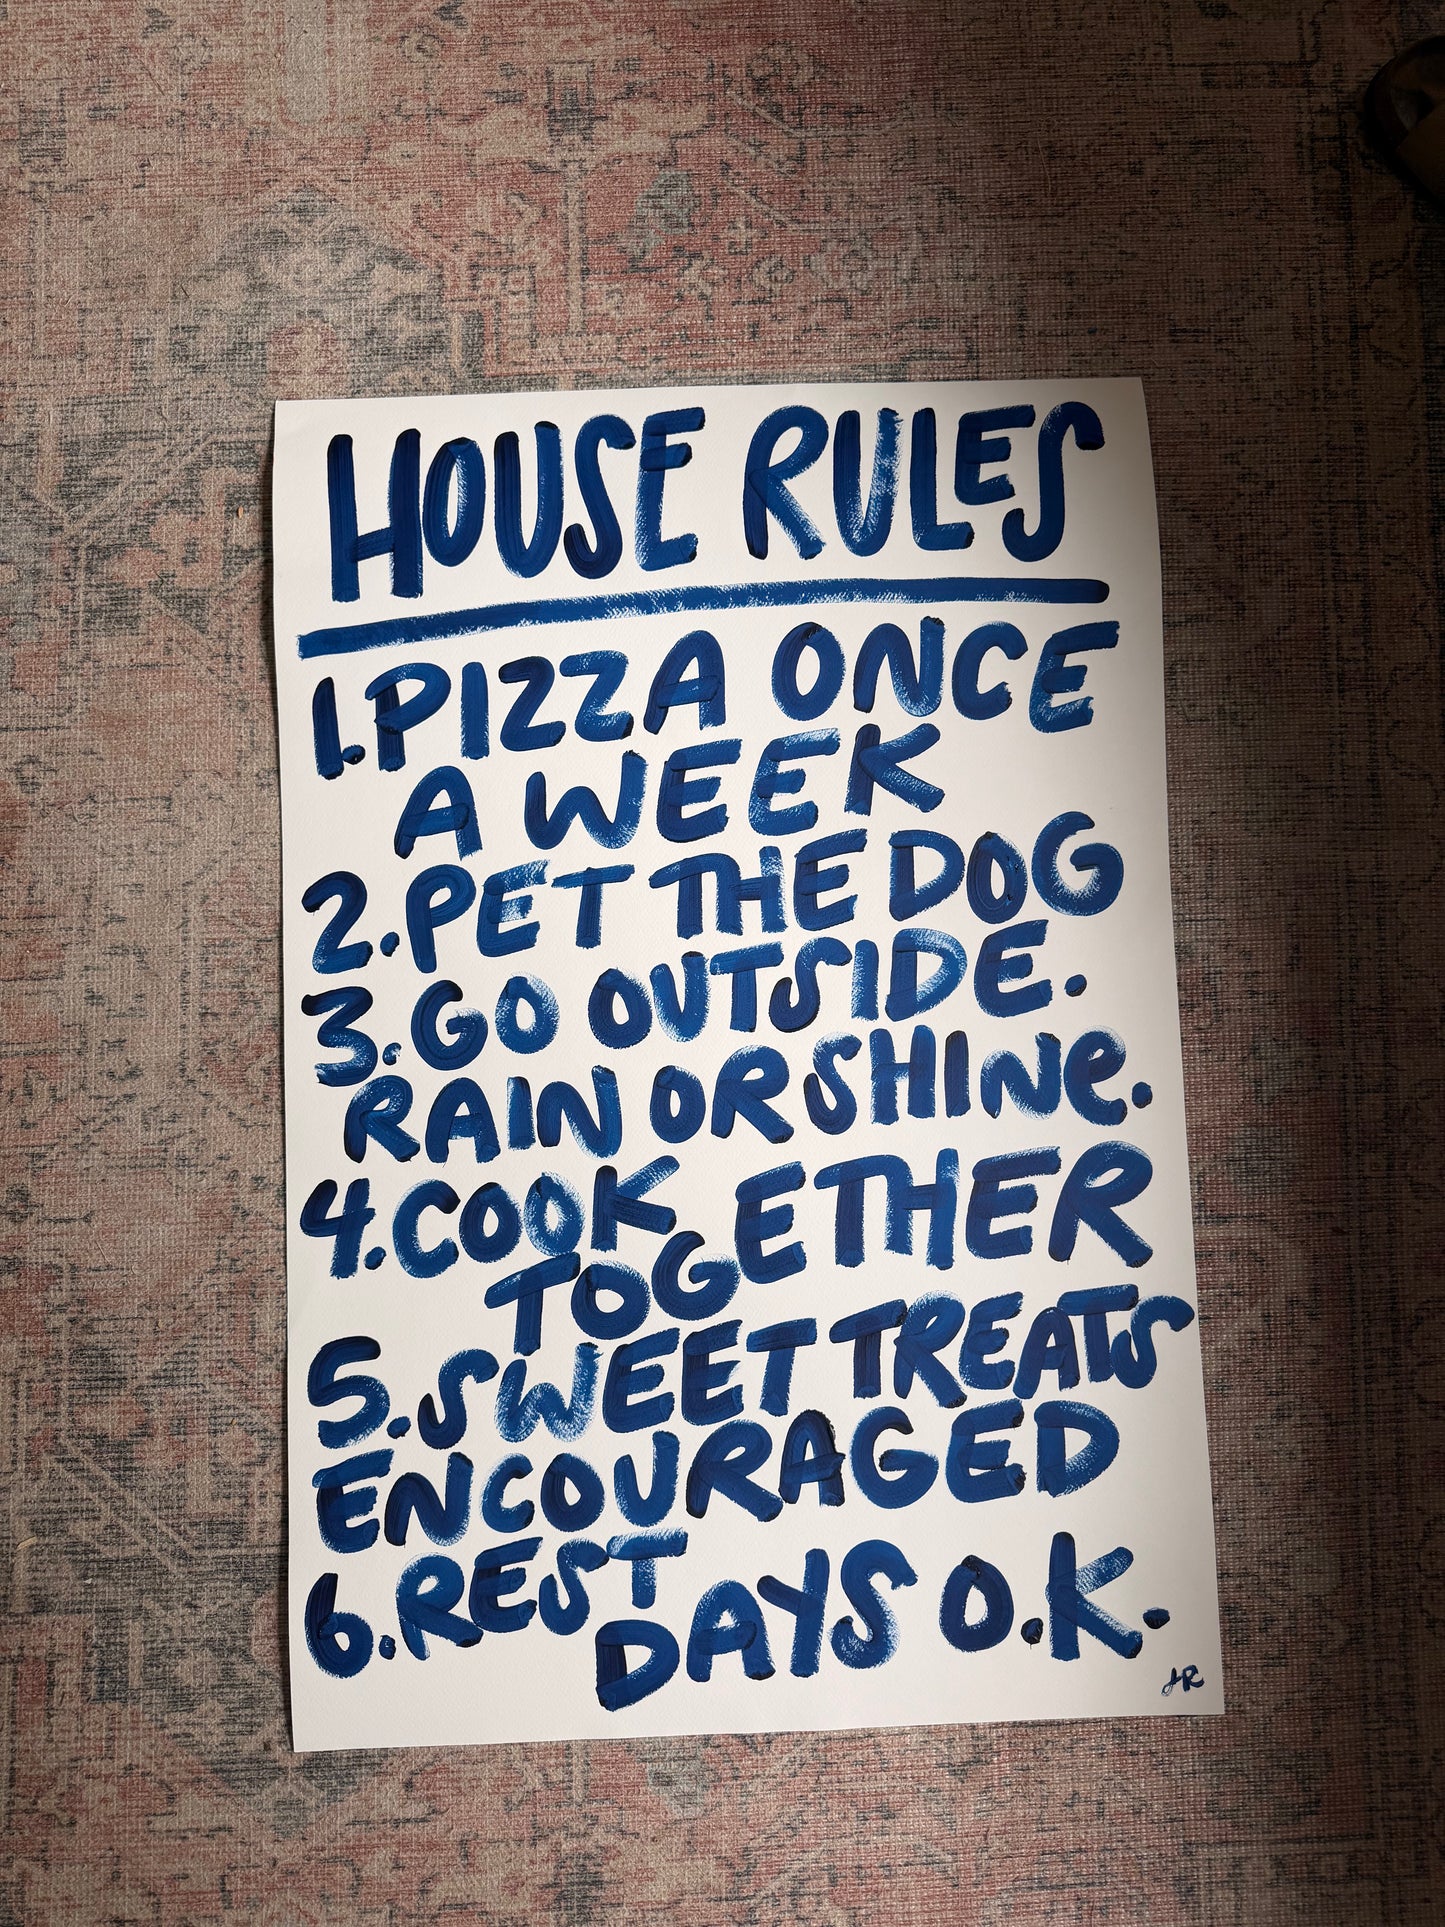 HOUSE RULES
1. PIZZA ONCE
A WEEK
2. PET THE DOG
3. GO OUTSIDE.
RAIN OR SHINe.
4. COOK
TOGETHER
5. SWEET TREATS
ENCOURAGED
6. REST
DAYS O.K.
JR